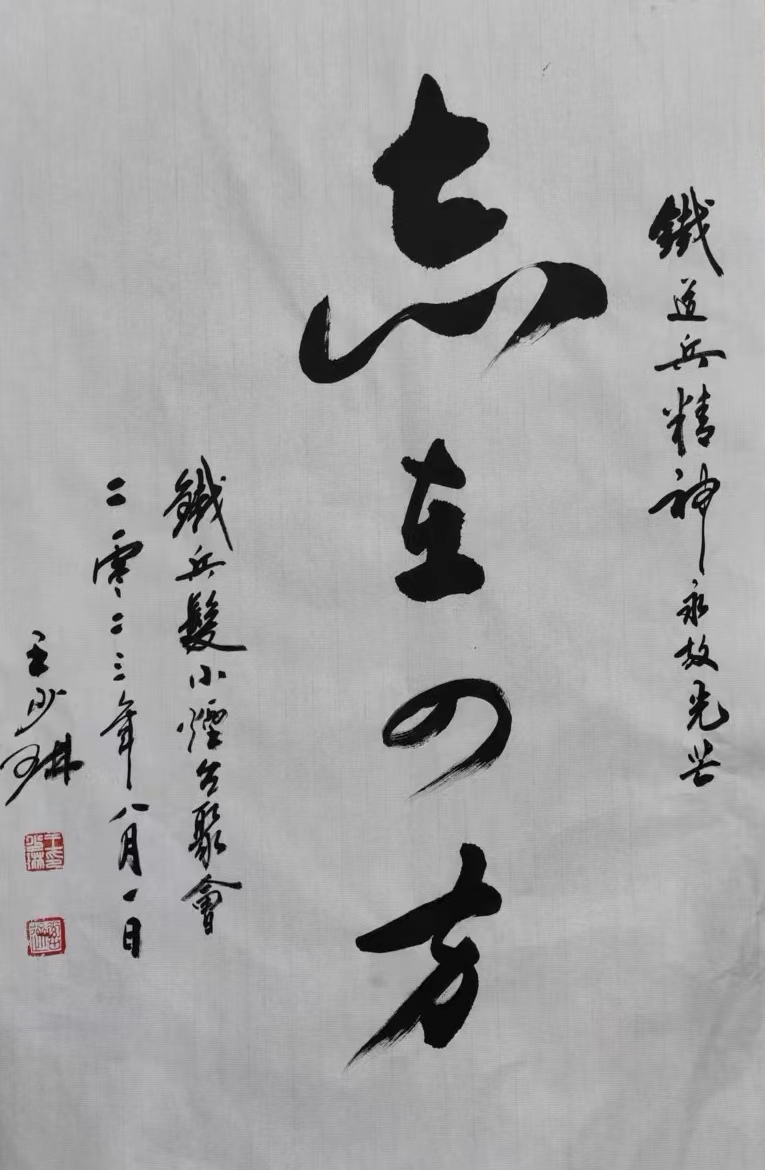 鐵道兵精神永放光芒
志在四方
鐵兵髮小煙台聚會
二零二三年八月一日
王少琳